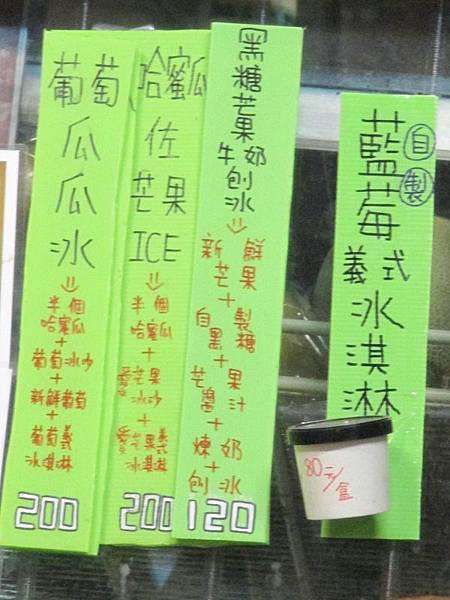 葡萄
瓜
瓜
冰
半個
哈蜜瓜
+
葡萄冰沙
+
新鮮葡萄
+
葡萄義
冰淇淋
200
哈蜜瓜
佐
芒果
ICE
半個
哈蜜瓜
+
愛芒果
冰沙
+
愛芒果義
冰淇淋
200
黑糖芒果牛奶刨冰
新鮮
芒果
+
自製
黑糖
+
芒果
醬汁
+
煉奶
+
刨冰
120
自製
藍莓
義式
冰淇淋
80元/盒